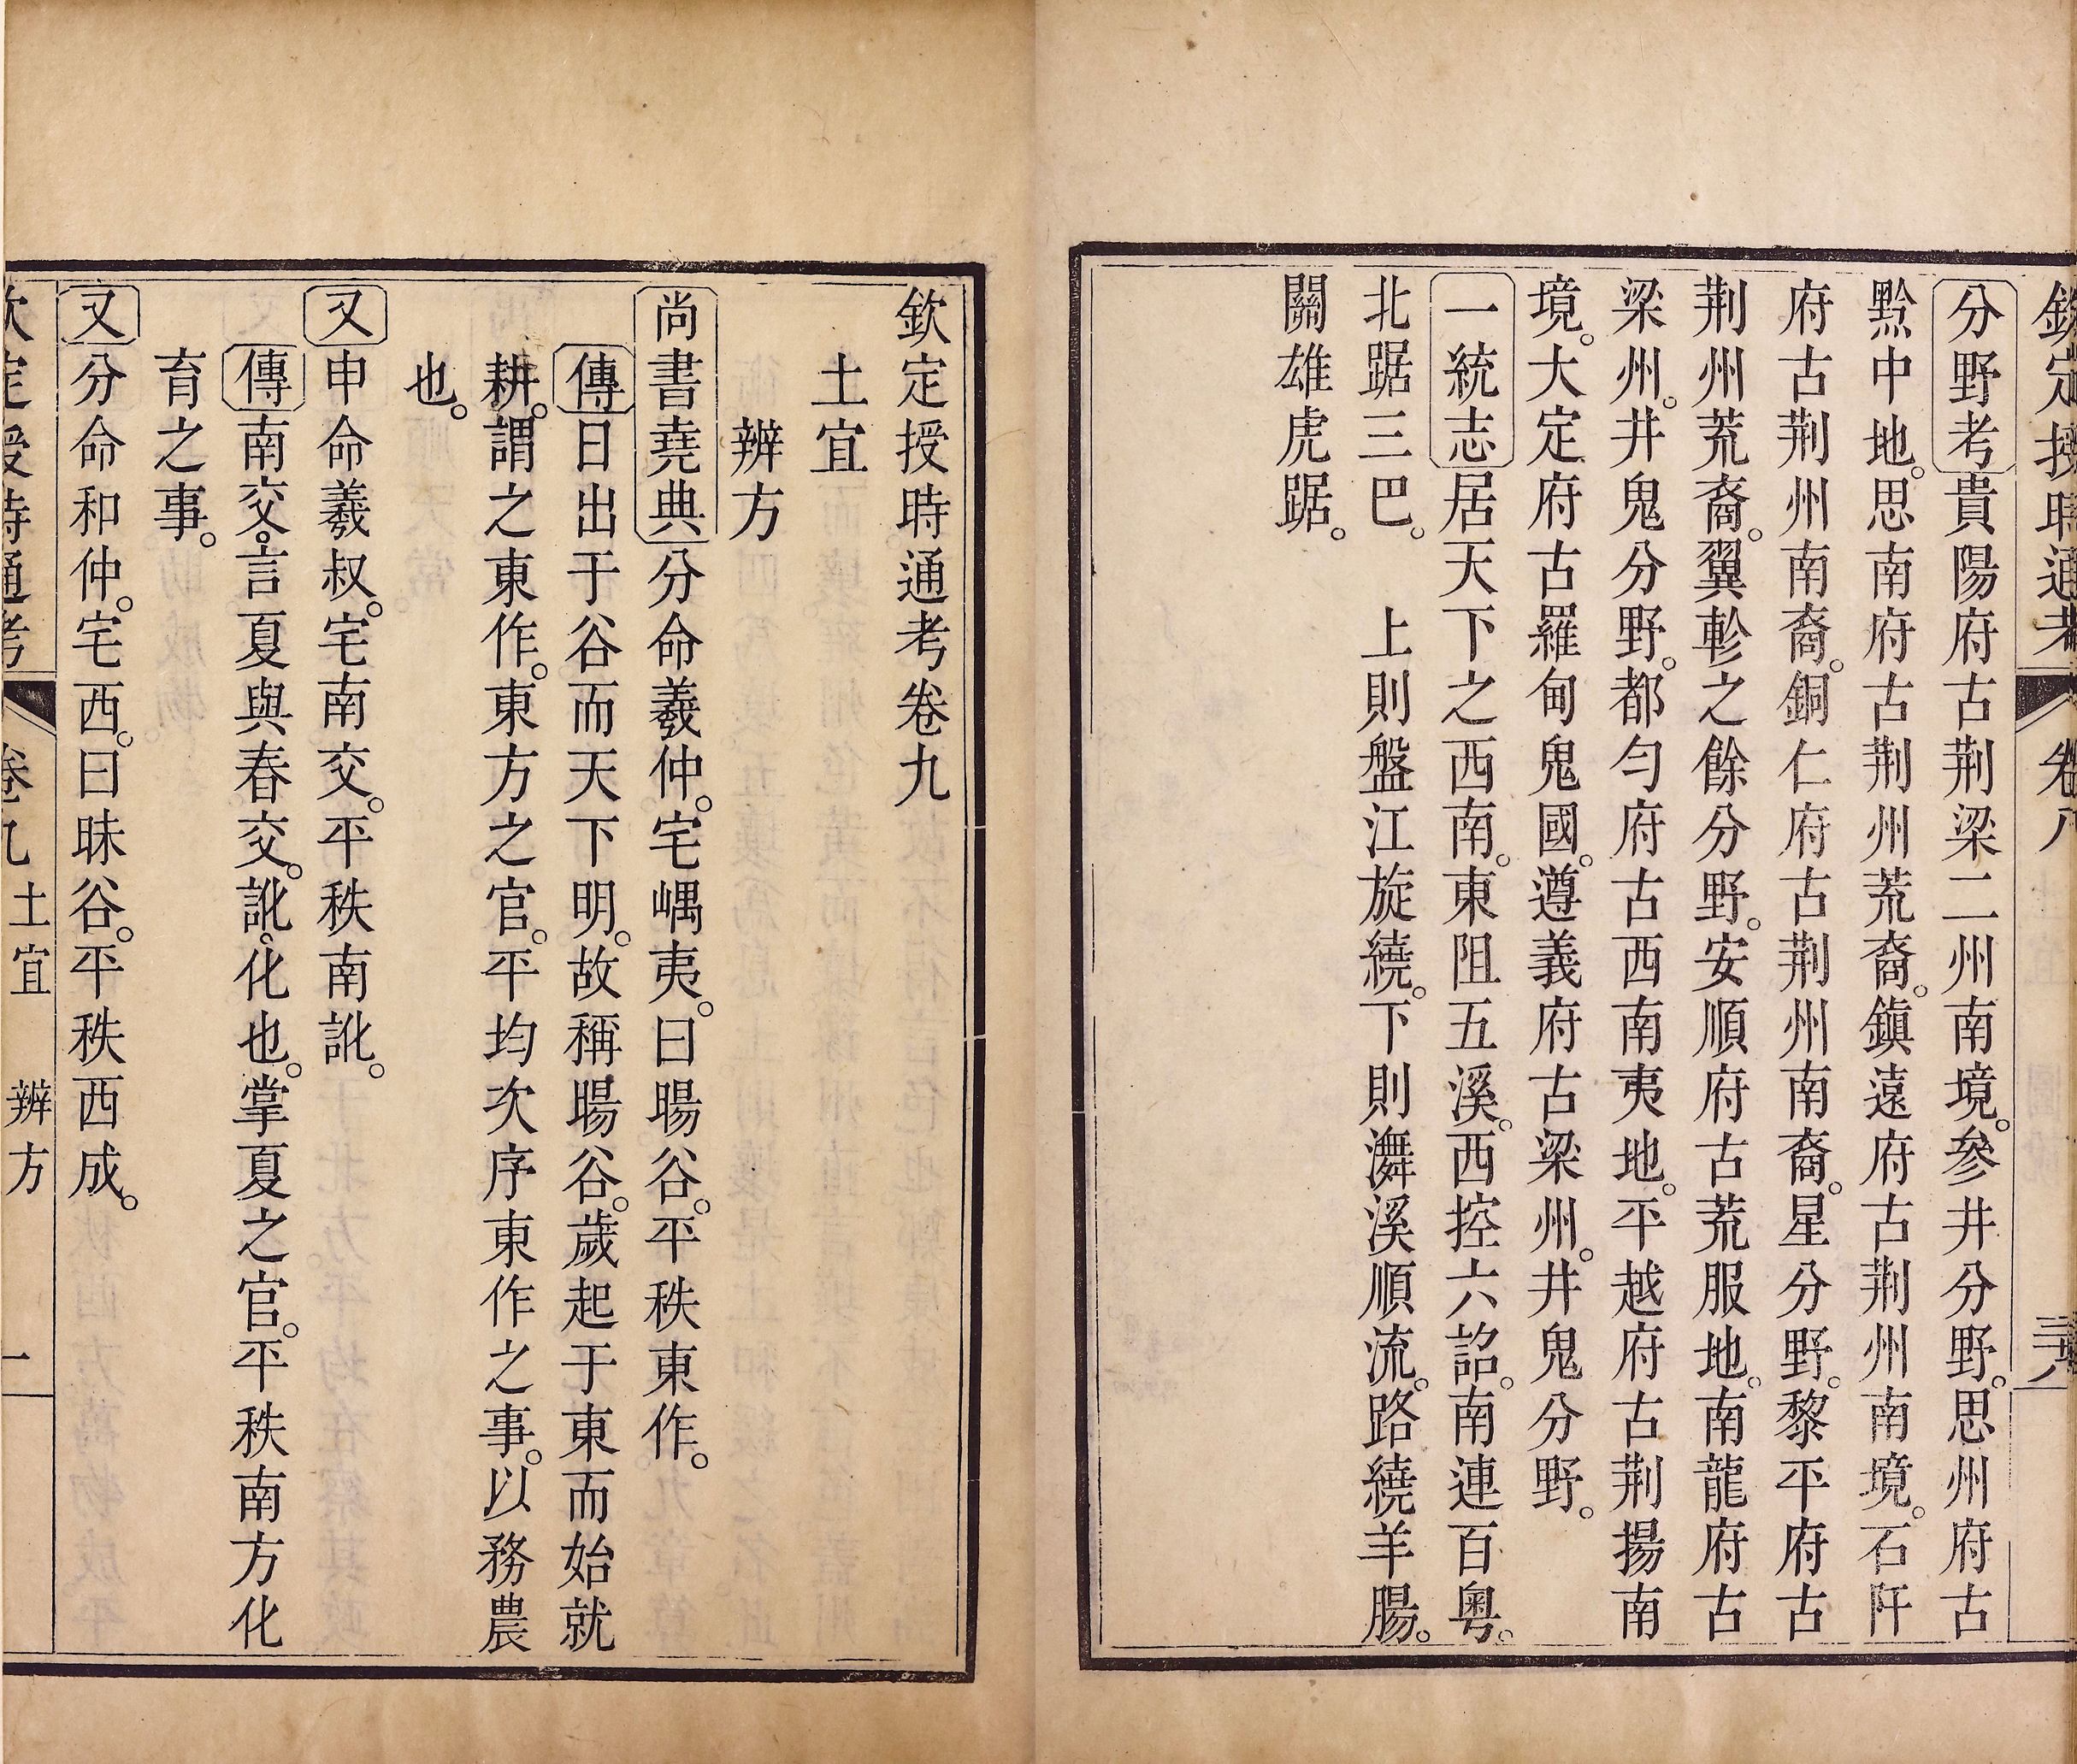 欽定授時通考 卷八 三十八
分野考貴陽府古荆梁二州南境。參井分野。思州府古
黔中地。思南府古荆州荒裔。鎮遠府古荆州南境。石阡
府古荆州南裔。銅仁府古荆州南裔。星分野。黎平府古
荆州荒裔。翼軫之餘分野。安順府古荒服地。南龍府古
梁州。井鬼分野。都匀府古西南夷地。平越府古荆揚南
境。大定府古羅甸鬼國。遵義府古梁州。井鬼分野。
一統志居天下之西南。東阻五溪。西控六詔。南連百粤。
北踞三巴。 上則盤江旋繞。下則潕溪順流。路繞羊腸。
關雄虎踞。
欽定授時通考卷九
土宜
辨方
尚書堯典分命羲仲。宅嵎夷。曰暘谷。平秩東作。
傳日出于谷而天下明。故稱暘谷。歲起于東而始就
耕。謂之東作。東方之官。平均次序東作之事。以務農
也。
又申命羲叔。宅南交。平秩南訛。
傳南交。言夏與春交。訛。化也。掌夏之官。平秩南方化
育之事。
又分命和仲。宅西。曰昧谷。平秩西成。
欽定授時通考 卷九 土宜 辨方 一